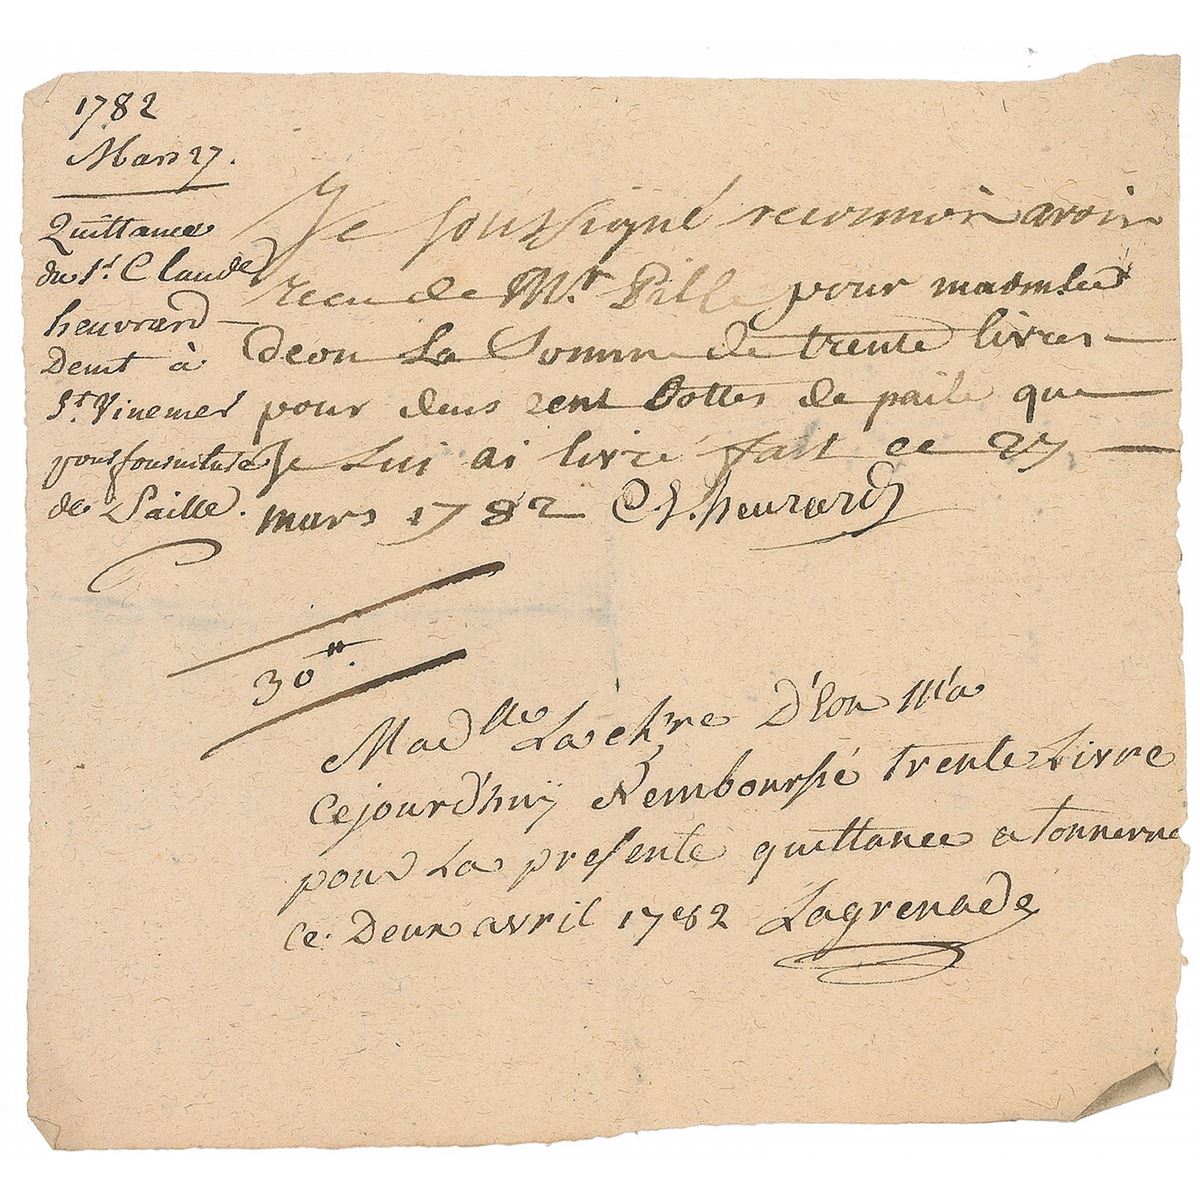 1782
Mars 27.
Quittance
du Sr. Claude
heuvrard
Demt à
St. Vinemer
pour fourniture
de Paille.
Je soussigné reconnoi avoir
receu de Mr. Pille pour
deon La Somme de trente livres
pour deus cent bottes de paile que
Je Lui ai livré fait ce 27
mars 1782 C. heuvrard
30 tt.
Madlle La chre D'Eon m'a
Cejourd'huÿ Remboursé trente Livre
pour La presente quittance a tonnerre
Ce Deux avril 1782 Lagrenade